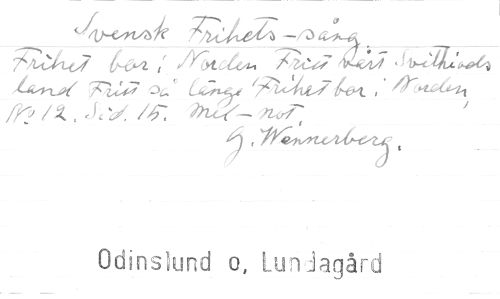 Svensk Frihets-sång.
Frihet bor i Norden Fritt vårt Svithiods
land Fritt så länge Frihet bor i Norden,
No 12. Sid. 15. Mel-not.
G. Wennerberg.
Odinslund o, Lundagård